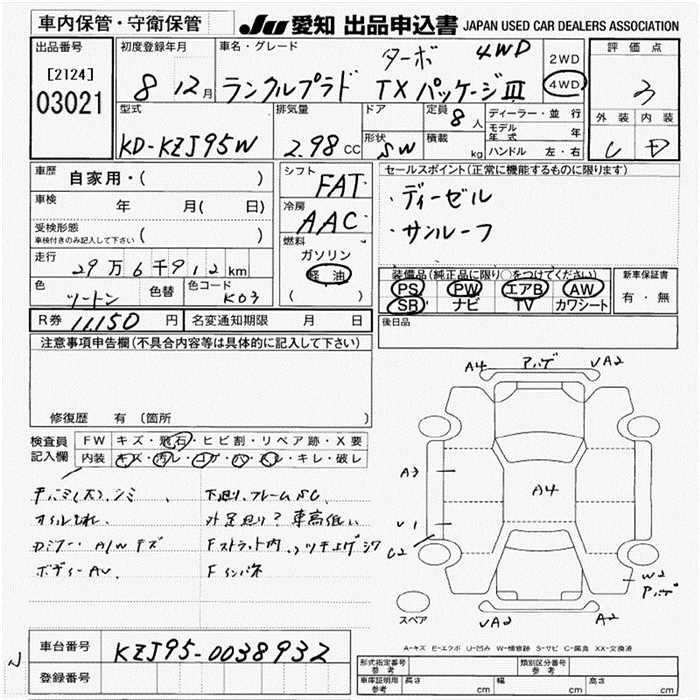 車内保管・守衛保管 JU 愛知 出品申込書 JAPAN USED CAR DEALERS ASSOCIATION
出品番号 初度登録年月 車名・グレード 2WD 評価点
[2124] 8 12月 ターボ 4WD 4WD
03021 ランクルプラド TX パッケージ III 3
型式 排気量 ドア 定員 ディーラー・並行 外装 内装
8人 モデル年式 年
KD-KZJ95W 2.98 CC 形状 SW 積載 kg ハンドル 左・右 C D
車歴 自家用・( ) シフト FAT セールスポイント(正常に機能するものに限ります)
車検 年 月( 日) 冷房 AAC ・ディーゼル
受検形態 ・サンルーフ
車検付きのみ記入して下さい ( ) 燃料
走行 29万6千912km ガソリン
軽油 装備品(純正品に限り○をつけてください) 新車保証書
色 ツートン 色替 色コード K03 ( ) PS PW エアB AW 有・無
SR ナビ TV カワシート
R券 11,150 円 名変通知期限 月 日 後日品
注意事項申告欄(不具合内容等は具体的に記入して下さい)
A4 アハゲ UA2
修復歴 有 (箇所
検査員記入欄 FW キズ・飛石・ヒビ割・リペア跡・X要
内装 キズ・汚レ・コゲ・穴・スレ・キレ・破レ
A3 A4
下廻り、フレームSC
オイルもれ、 車高低い U1
A/Wキズ C2
ボディーAU、 W2
スペア UA2 A2
A-キズ E-エクボ U-凹み W-補修跡 S-サビ C-腐食 XX-交換済
車台番号 KZJ95-0038932
登録番号
形式指定番号 参考 類別区分番号 参考
車庫証明用 参考 長さ cm 幅 cm 高さ cm